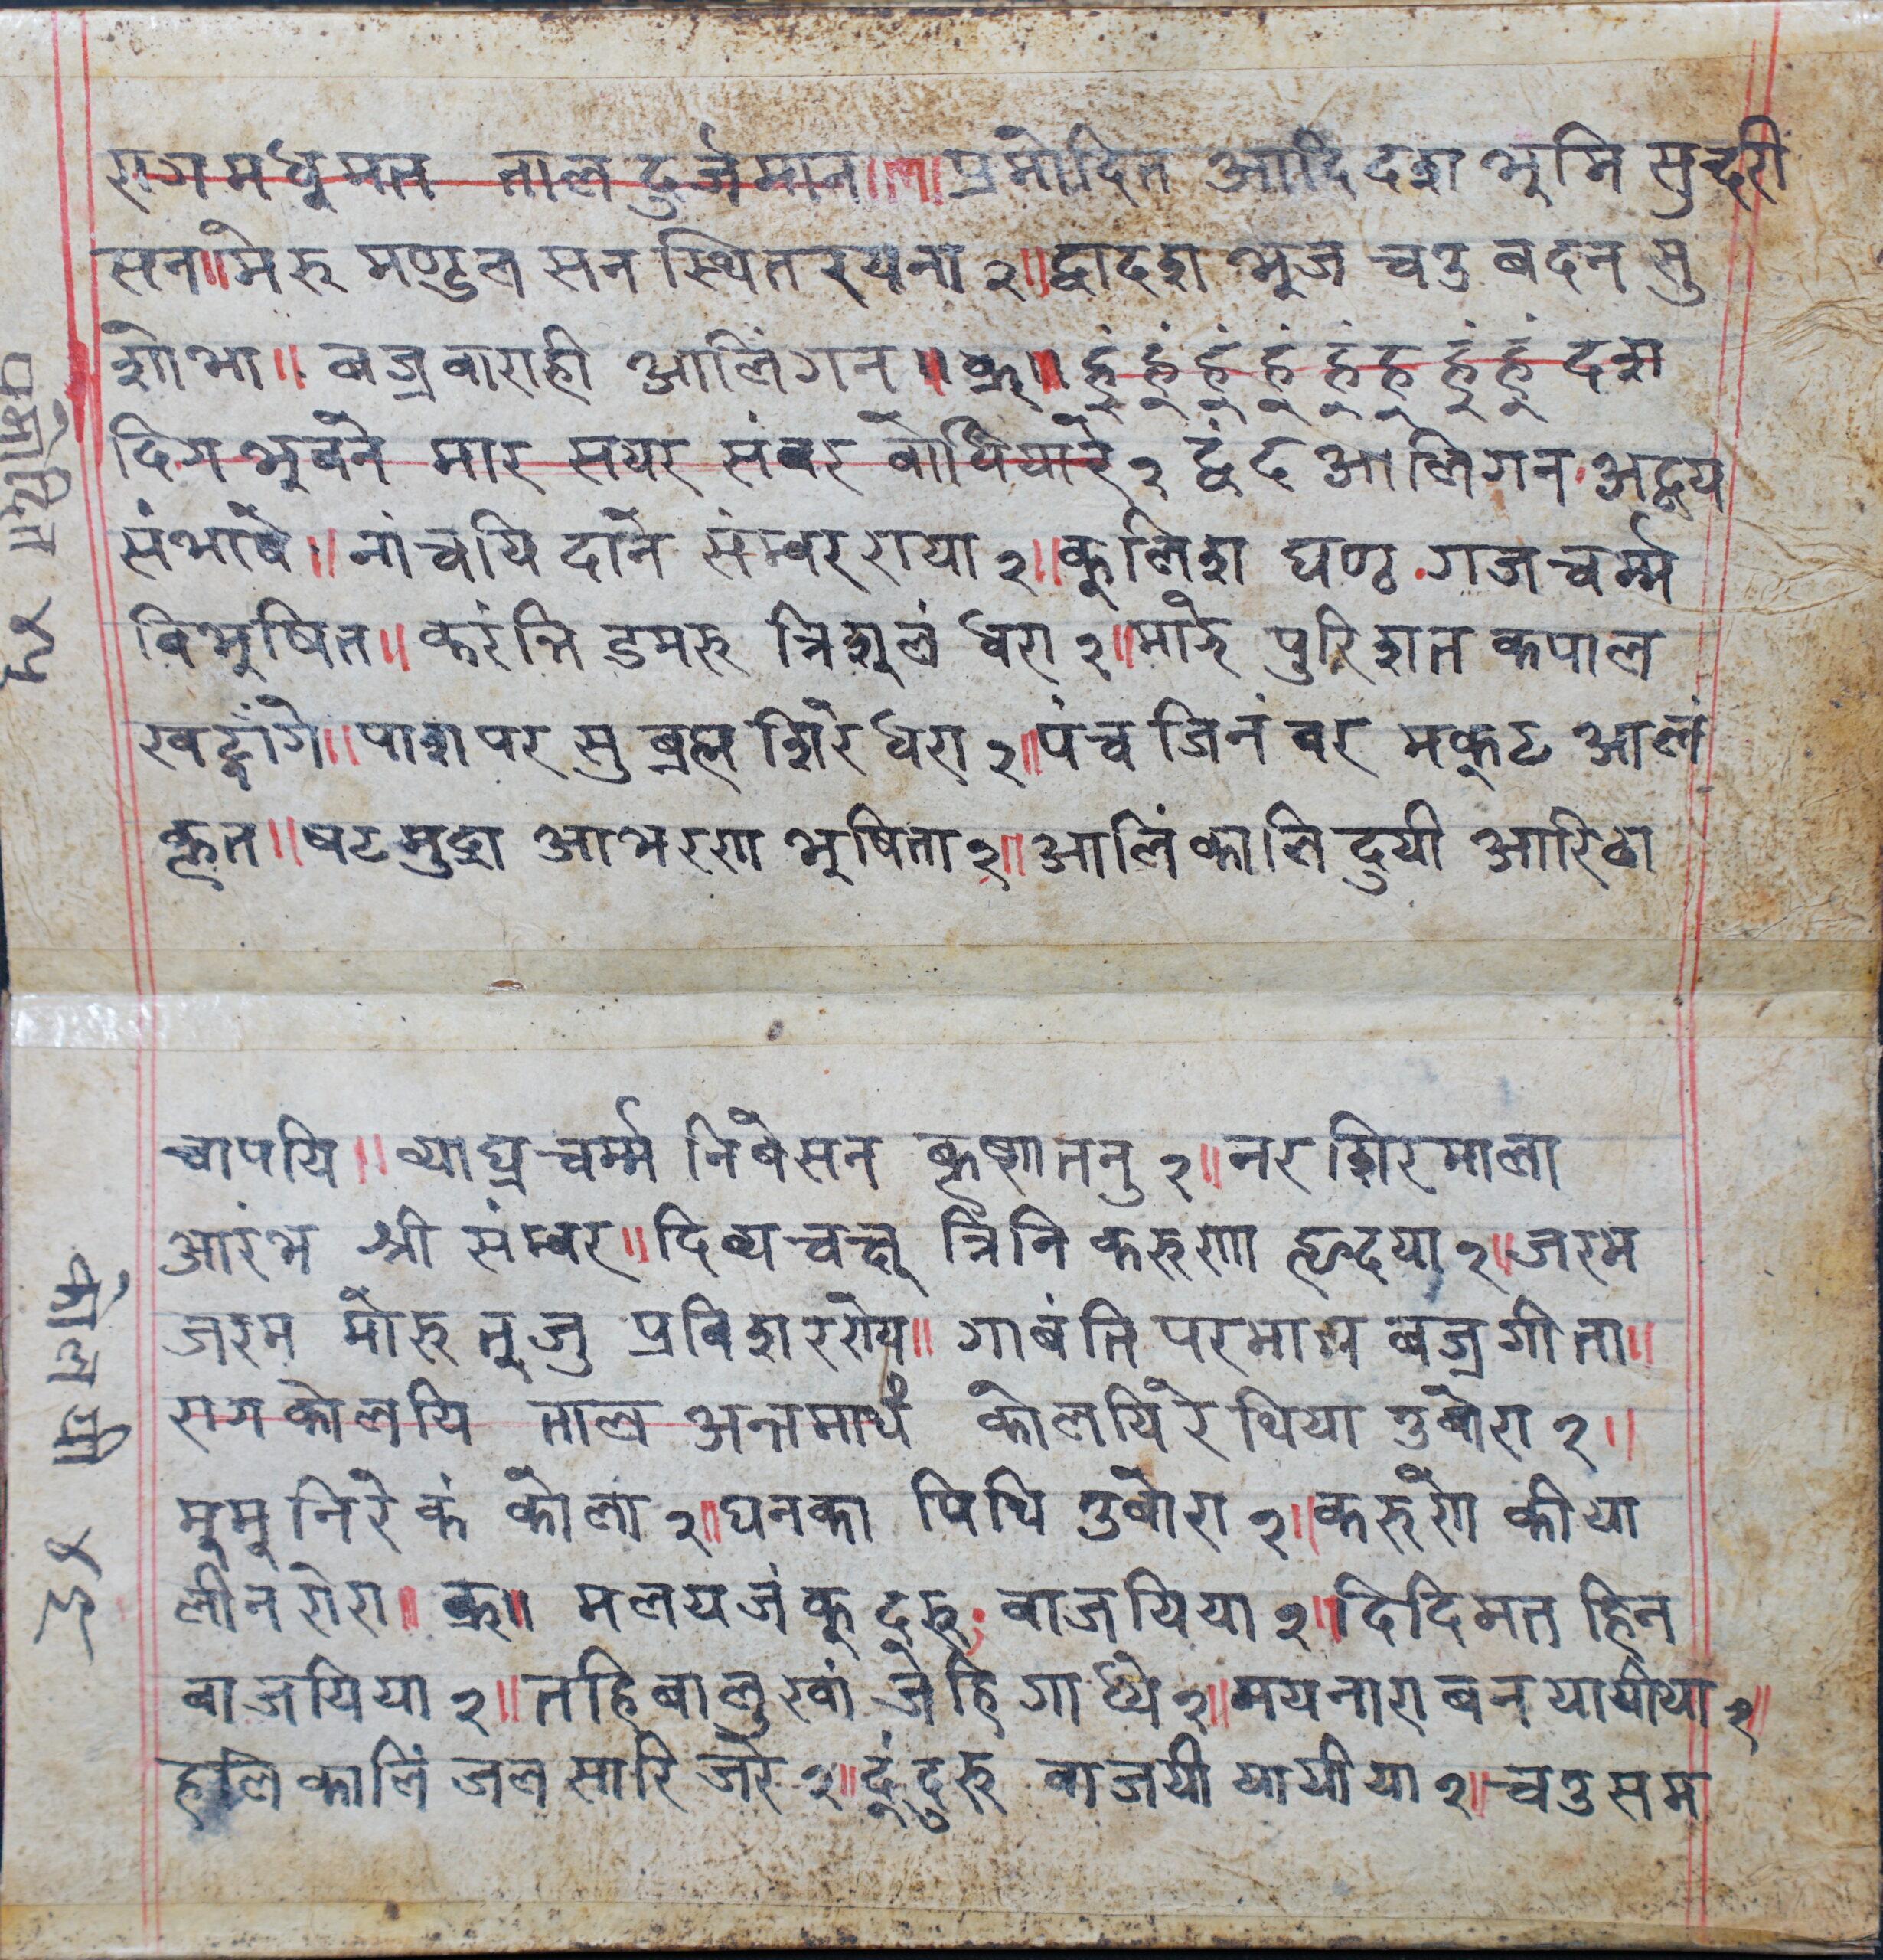 राग मधुमान ताल दुर्जमान॥ल॥प्रमोदित आदि दश भुमि सुन्दरी
सन॥मेरु मण्डल सन स्थित रयना २॥द्वादश भूज चतु बदन सु
शोभा॥ बज्रबाराही आलिंगन॥क्रू॥ हुं हुं हुं हुं हुं हुं हुं हुं दश
दिग भुबने मार सयर संबर बोधियारे २ द्वंद आलिगन अद्वय
संभाबे॥नांचयि दाने संम्बर राया २॥कुलिश घण्ठ गज चर्म्म
बिभुषित॥करंत्ति डमरु त्रिशुलं धरा २॥माहे पुरि शत कपाल
खट्वांगे॥पाश पर सु ब्रह्म शिरे धरा २॥पंच जिनं बर मकुट आलं
कृत॥षट मुद्रा आभरण भूषिता २॥आलिं कालि दुयी आरिढा
चापयि॥व्याघ्र चर्म्म निबेसन कृष्ण तनु २॥नर शिर माला
आरंभ श्री संम्बर॥दिब्य चक्षू त्रिनि करुणा हृदया २॥जरम
जरम मोरु तूजु प्रबिश ररोय॥ गाबंति परमाथ बज्रगीता॥
राग कोलयि ताल अन्तमाथं कोलयिरे थिया तुबोरा २॥
मूमूनिरे कं कोला २॥घनका पिथि तुबोरा २॥करुणे कीया
लीनं रोरा॥ क्रू॥ मलयजं कुदूरु बाजयिया २॥दिदिमत हिन
बाजयिया २॥तहि बालु खां जेहि गाध्ये २॥मयनारा बन यायीया २॥
हलि कालिं जल सारि जरे २॥दूंदुरु बाजयी यायीया २॥चतु सम
प्रमोदित ४५
कोलयी ४६